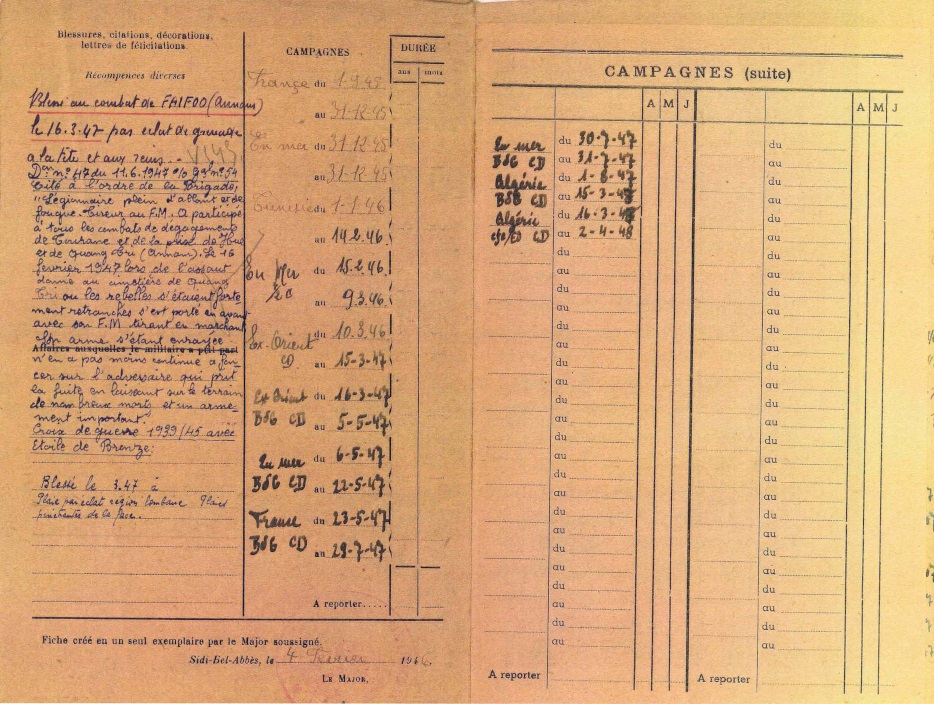 Blessures, citations, décorations,
lettres de félicitations
Récompenses diverses
Blessé au combat de FAIFOO (Annam)
le 16.3.47 par éclat de grenade
a la tête et aux reins.-
n° 47 du 11.6.1947 n° 54
Cité à l'ordre de la Brigade,
"Légionnaire plein d'allant et de
fougue. Tireur au F.M. A participé
à tous les combats de dégagement
de Tourane et de la prise de Hué
et de Quang Tri (Annam). Le 16
février 1947 lors de l'assaut
donné au cimetière de Quang
Tri ou les rebelles s'étaient forte
ment retranchés s'est porté en avant
avec son F.M. tirant en marchant
Son arme s'étant enrayée
Affaires auxquelles le militaire a pris part
n'en a pas moins continué a fon
cer sur l'adversaire qui prit
la fuite en laissant sur le terrain
de nombreux morts et un arme
ment important."
Croix de guerre 1939/45 avec
Etoile de Bronze:
Blessé le 3.47 à
Plaie par éclat région lombaire Plaies
pénétrantes de la face.
CAMPAGNES
DURÉE
ans mois
France du 1-9-45
au 31-12-45
En mer du 31-12-45
au 31-12-45
Tunisie du 1-1-46
au 14.2.46
En Mer du 15.2.46
au 9.3.46
Ex. Orient du 10.3.46
CD au 15-3-47
Ex Orient du 16-3-47
BSG CD au 5-5-47
En mer du 6-5-47
BSG CD au 22-5-47
France du 23-5-47
BSG CD au 29-7-47
A reporter.....
Fiche créé en un seul exemplaire par le Major soussigné.
Sidi-Bel-Abbès, le 4 Février 1946
LE MAJOR,
CAMPAGNES (suite)
A M J A M J
En mer du 30-7-47 du
BSG CD au 31-7-47 au
Algérie du 1-8-47 du
BSG CD au 15-3-48 au
Algérie du 16-3-48 du
CD au 2-4-48 au
du du
au au
du du
au au
du du
au au
du du
au au
du du
au au
du du
au au
du du
au au
du du
au au
du du
au au
du du
au au
du du
au au
A reporter A reporter